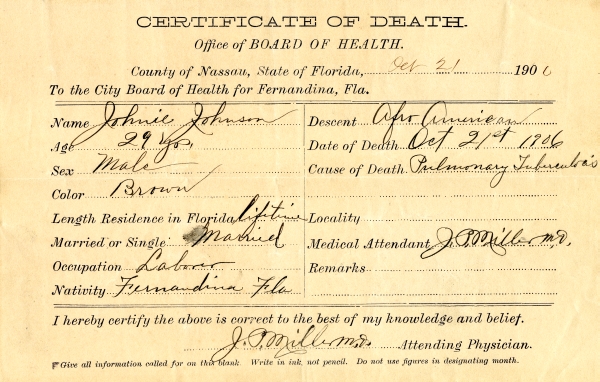 CERTIFICATE OF DEATH.
Office of BOARD OF HEALTH.
County of Nassau, State of Florida, Oct 21 1906
To the City Board of Health for Fernandina, Fla.
Name Johnie Johnson
Age 29 yrs
Sex Male
Color Brown
Length Residence in Florida lifetime
Married or Single Married
Occupation Laborer
Nativity Fernandina Fla
Descent Afro American
Date of Death Oct 21st 1906
Cause of Death Pulmonary Tuberculosis
Locality
Medical Attendant J. P. Miller M.D.
Remarks
I hereby certify the above is correct to the best of my knowledge and belief.
J. P. Miller M.D. Attending Physician.
☞ Give all information called for on this blank. Write in ink, not pencil. Do not use figures in designating month.